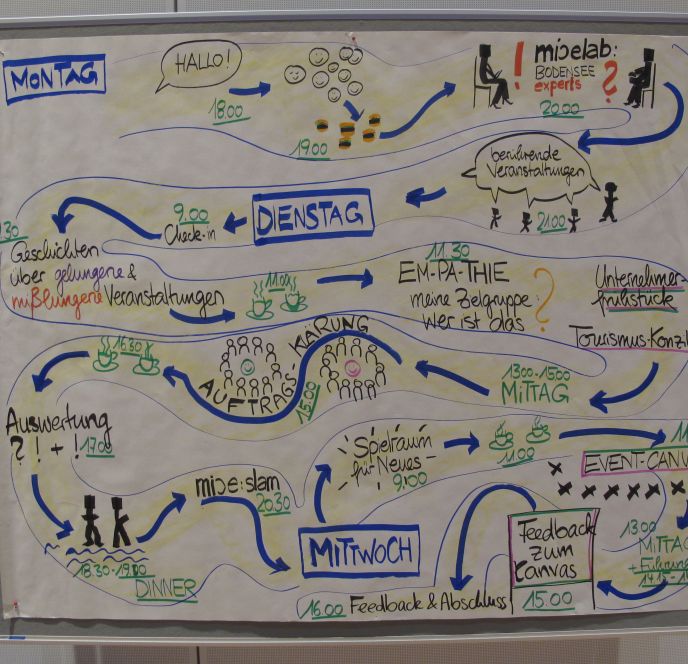 MONTAG
HALLO!
18.00
19.00
!
mice lab:
BODENSEE
experts
?
20.00
berührende
Veranstaltungen
21.00
DIENSTAG
9.00
Check-in
Geschichten
über gelungene &
mißlungene Veranstaltungen
11.00
11.30
EM-PA-THIE
meine Zielgruppe:
wer ist das
?
Unternehmer-
frühstück
13.00-15.00
MITTAG
AUFTRAGS-KÄRUNG
15.00
16.30
Auswertung
? ! + !
17.00
18.30-19.00
DINNER
mice:slam
20.30
MITTWOCH
Spielraum
für Neues
9.00
11.00
13.00
Feedback
zum
Canvas
15.00
16.00 Feedback & Abschluss